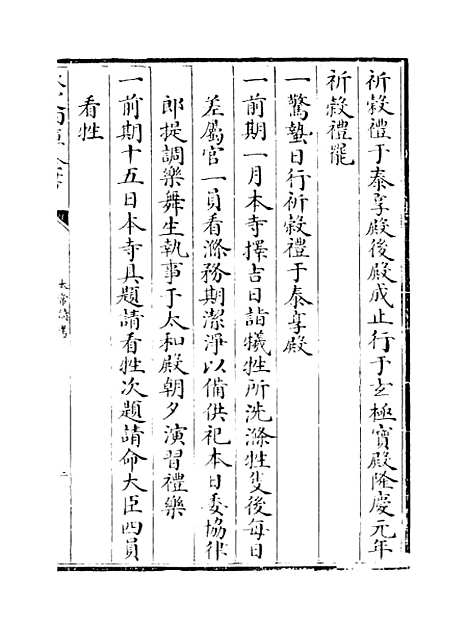 祈穀禮于泰享殿後殿成止行于玄極寶殿隆慶元年
祈穀禮罷
一驚蟄日行祈穀禮于泰享殿
一前期一月本寺擇吉日詣犧牲所洗滌牲隻後每日
差屬官一員看滌務期潔淨以備供祀本日委協律
郎提調樂舞生執事于太和殿朝夕演習禮樂
一前期十五日本寺具題請看牲次題請命大臣四員
看牲
太常續考
二